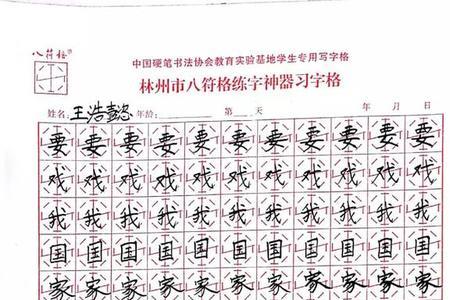 八符格
中国硬笔书法协会教育实验基地学生专用写字格
林州市八符格练字神器习字格
姓名：王浩懿 年龄：　第　天　年　月　日
要要要要要要要要要要要
戏戏戏戏戏戏戏戏戏戏戏
我我我我我我我我我我我
国国国国国国国国国国国
家家家家家家家家家家家